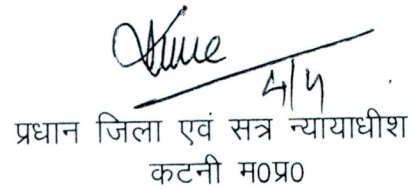 4/4
प्रधान जिला एवं सत्र न्यायाधीश
कटनी म0प्र0